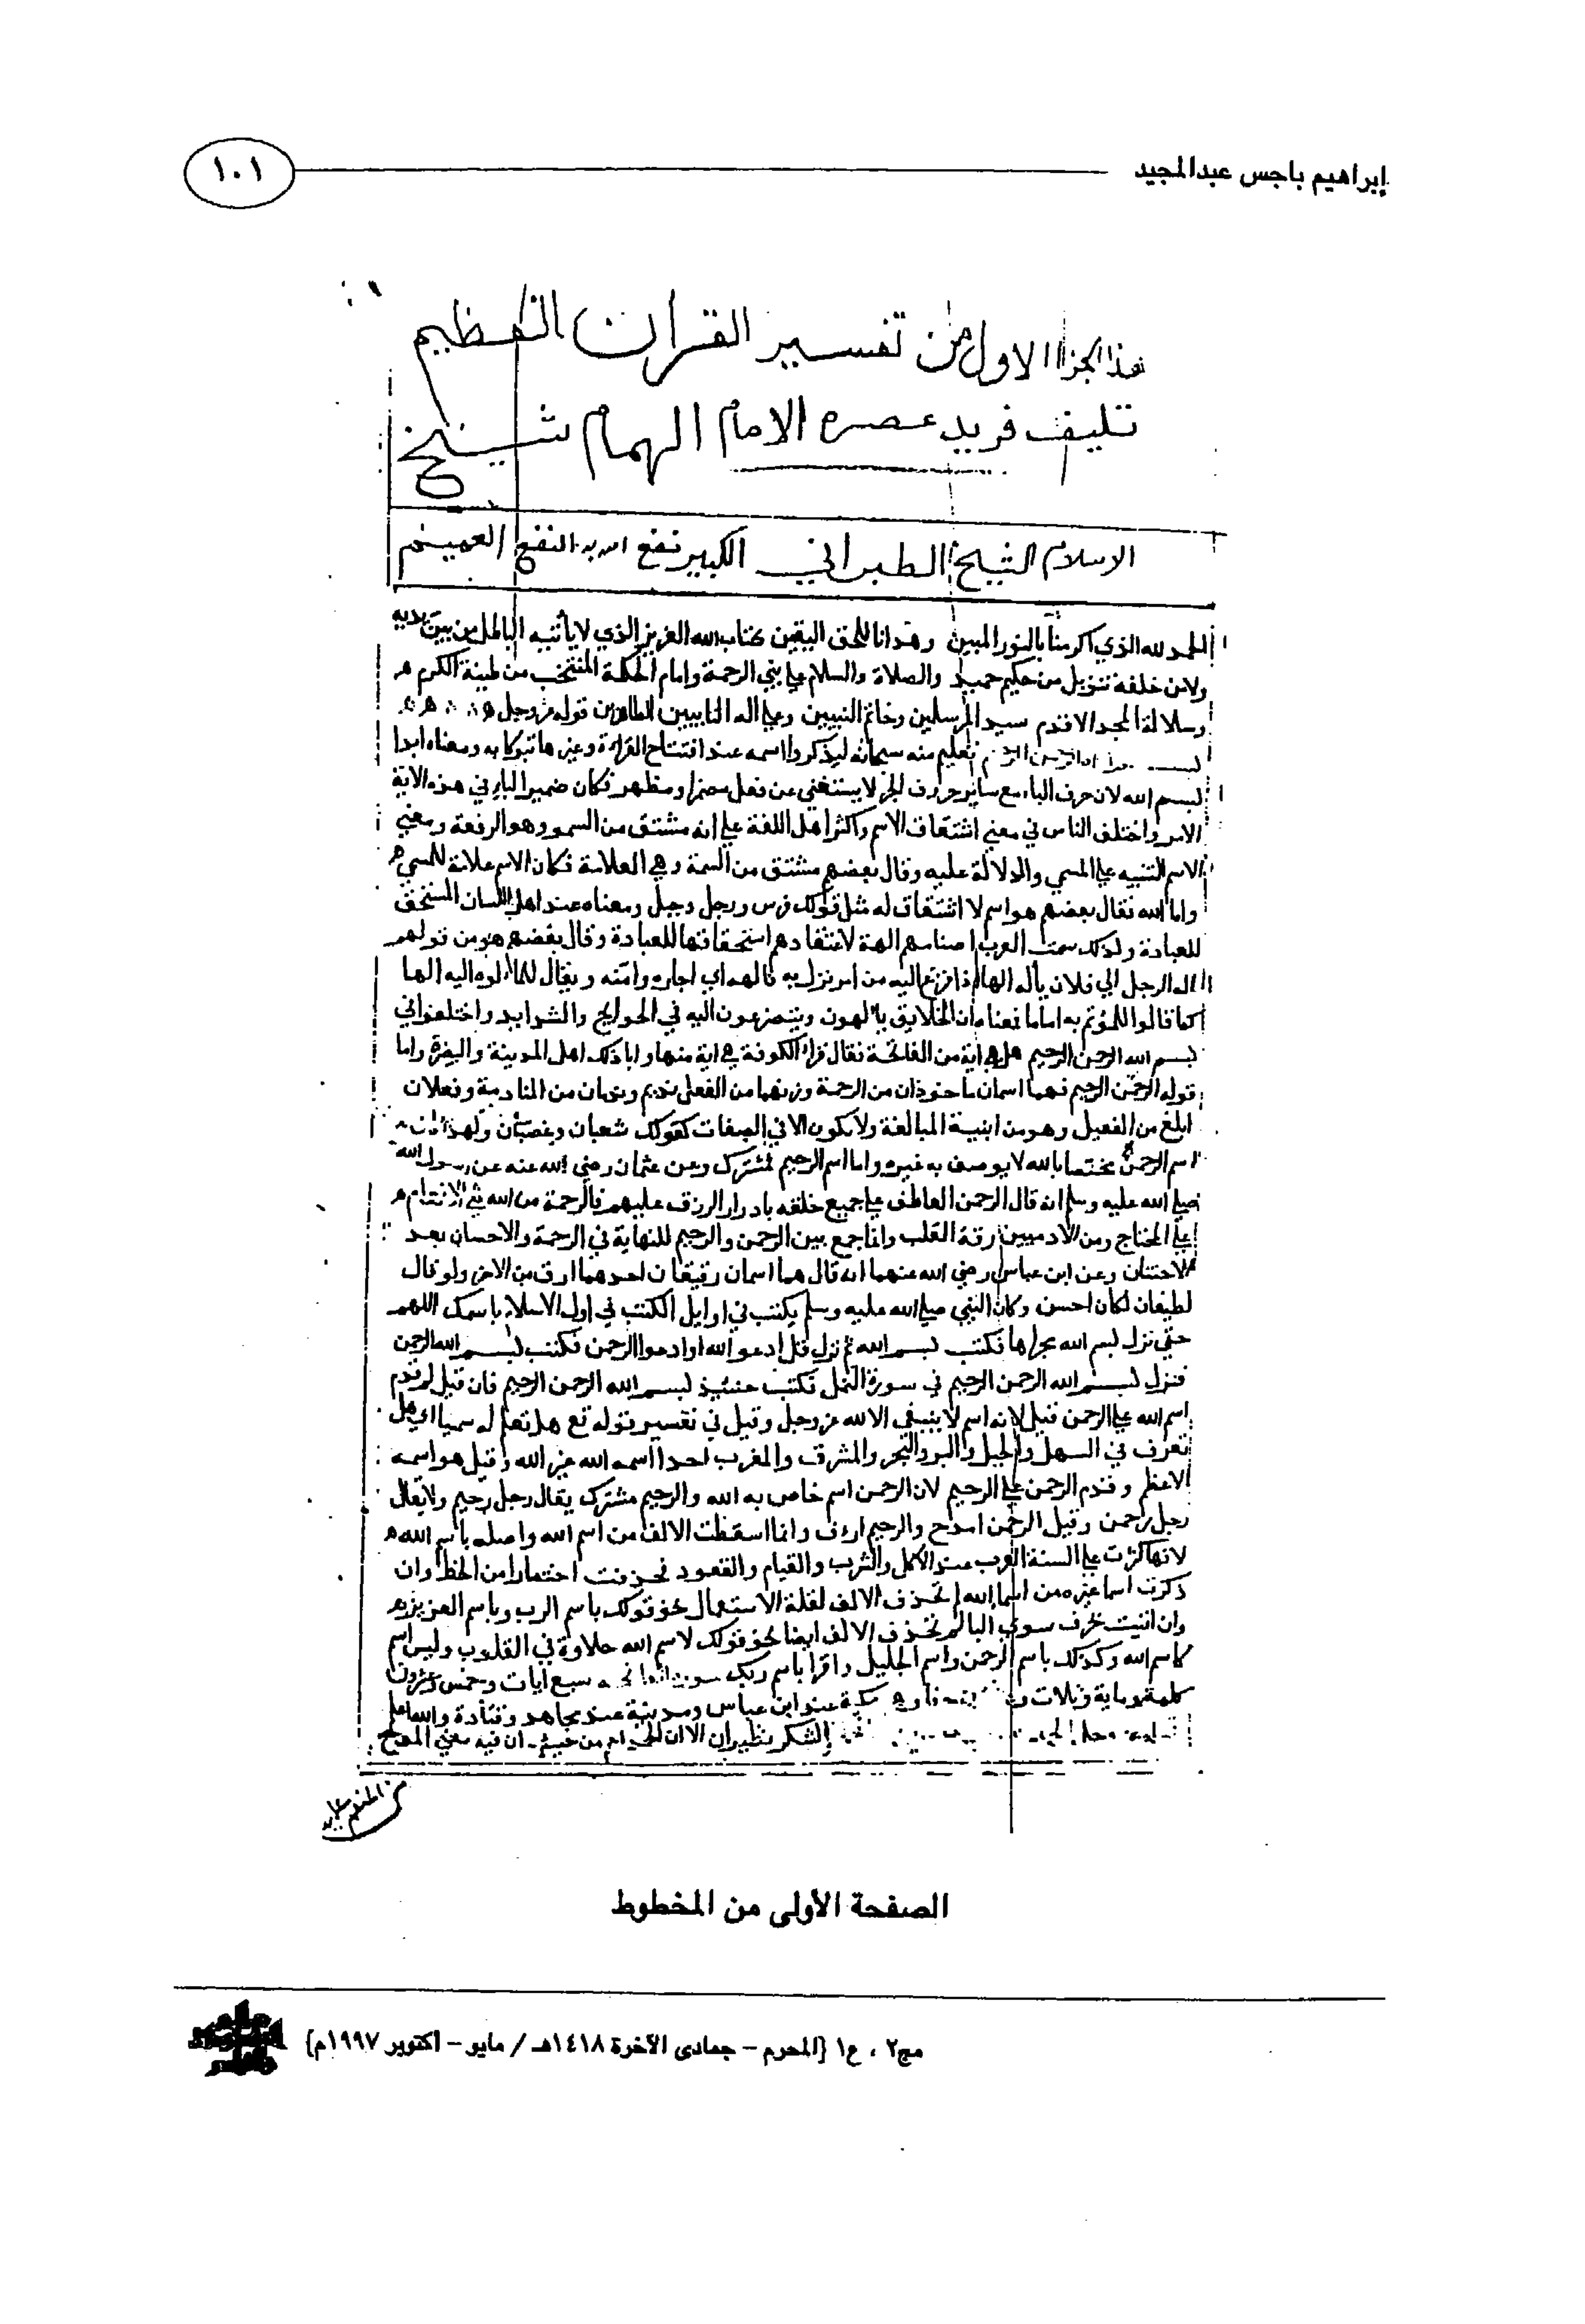 إبراهيم باجس عبدالمجيد
١٠١
هذا الجزا الاول من تفسير القران العظيم
تليف فريد عصره الامام الهمام شيخ
الاسلام الشيخ الطبراني الكبير نفع الله به النفع العميم
الحمد لله الذي اكرمنا بالنور المبين وهدانا للحق اليقين بكتاب الله العزيز الذي لا يأتيه الباطل من بين يديه
ولا من خلفه تنزيل من حكيم حميد والصلاة والسلام علي نبي الرحمة وامام الحكمة المنتخب من طينة الكرم
وسلالة المجد الاقدم سيد المرسلين وخاتم النبيين وعلي اله الطاهرين قوله عز وجل
تعليم منه سبحانه ليذكروا اسمه عند افتتاح القراءة وغيرها تبركا به ومعناه ابدا
بسم الله لان حرف الباء مع ساير حروف الجر لا يستغني عن فعل مضمر او مظهر فكان ضمير الباء في هذه الاية
الامر واختلف الناس في معني اشتقاق الاسم واكثر اهل اللغة علي انه مشتق من السمو وهو الرفعة ومعني
الاسم التنبيه علي المسمي والدلالة عليه وقال بعضهم مشتق من السمة وهي العلامة فكان الاسم علامة للمسمي
واما الله فقال بعضهم هو اسم لا اشتقاق له مثل قولك فرس ورجل وجبل ومعناه عند اهل اللسان المستحق
للعبادة ولذلك سمت العرب اصنامهم الهة لاعتقادهم استحقاقها للعبادة وقال بعضهم هو من قولهم
اله الرجل الي فلان يأله الها اذا فزع اليه من امر نزل به فالهه اي اجاره وامنه ويقال للمألوه اليه الها
كما قالوا للمؤتم به اماما فمعناه ان الخلايق يالهون ويتضرعون اليه في الحوايج والشدايد واختلفوا في
بسم الله الرحمن الرحيم هل هي اية من الفاتحة فقال قراء الكوفة هي اية منها وابا ذلك اهل المدينة والبصرة واما
قوله الرحمن الرحيم فهما اسمان ماخوذان من الرحمة وزنهما من الفعل نديم وندمان من المنادمة وفعلان
ابلغ من الفعيل وهو من ابنية المبالغة ولا يكون الا في الصفات كقولك شعبان وغضبان ولهذا كان
اسم الرحمن مختصا بالله لا يوصف به غيره واما اسم الرحيم فمشترك وعن عثمان رضي الله عنه عن رسول الله
صلي الله عليه وسلم انه قال الرحمن العاطف علي جميع خلقه بادرار الرزق عليهم فالرحمة من الله
علي المحتاج ومن الادميين رقة القلب وانما جمع بين الرحمن والرحيم للنهاية في الرحمة والاحسان بعد
الاحتنان وعن ابن عباس رضي الله عنهما انه قال هما اسمان رقيقان احدهما ارق من الاخر ولو قال
لطيفان لكان احسن وكان النبي صلي الله عليه وسلم يكتب في اوايل الكتب في اول الاسلام باسمك اللهم
حتي نزل بسم الله مجراها فكتب بسم الله ثم نزل قل ادعوا الله او ادعوا الرحمن فكتب بسم الله الرحمن
فنزل بسم الله الرحمن الرحيم في سورة النمل فكتب حينئذ بسم الله الرحمن الرحيم فان قيل لم قدم
اسم الله علي الرحمن قيل لانه اسم لا ينبغي الا لله عز وجل وقيل في تفسير قوله تع هل تعلم له سميا اي هل
تعرف في السهل والجبل والبر والبحر والمشرق والمغرب احدا اسمه الله غير الله وقيل هو اسمه
الاعظم وقدم الرحمن علي الرحيم لان الرحمن اسم خاص به الله والرحيم مشترك يقال رجل رحيم ولا يقال
رجل رحمن وقيل الرحمن امدح والرحيم ارؤف وانما اسقطت الالف من اسم الله واصله باسم الله
لانها كثرت علي السنة العرب عند الاكل والشرب والقيام والقعود فحذفت اختصارا من الخط وان
ذكرت اسما غيره من اسما الله لم تحذف الالف لقلة الاستعمال نحو قولك باسم الرب وباسم العزيز
وان اتيت بحرف سوي البا لم تحذف الالف ايضا نحو قولك لاسم الله حلاوة في القلوب وليس اسم
كاسم الله وكذلك باسم الرحمن واسم الجليل واقرا باسم ربك سبع ايات وخمس وعشرون
كلمة وماية وثلاث وهي مكية عند ابن عباس ومدينية عند مجاهد وقتادة والله اعلم
الشكر نظيران الا ان الحمد اعم من حيث ان فيه معني المدح
من المنعم عليه
الصفحة الأولى من المخطوط
مج٢ ، ع١ {المحرم – جمادى الآخرة ١٤١٨هـ / مايو – اكتوبر ١٩٩٧م}